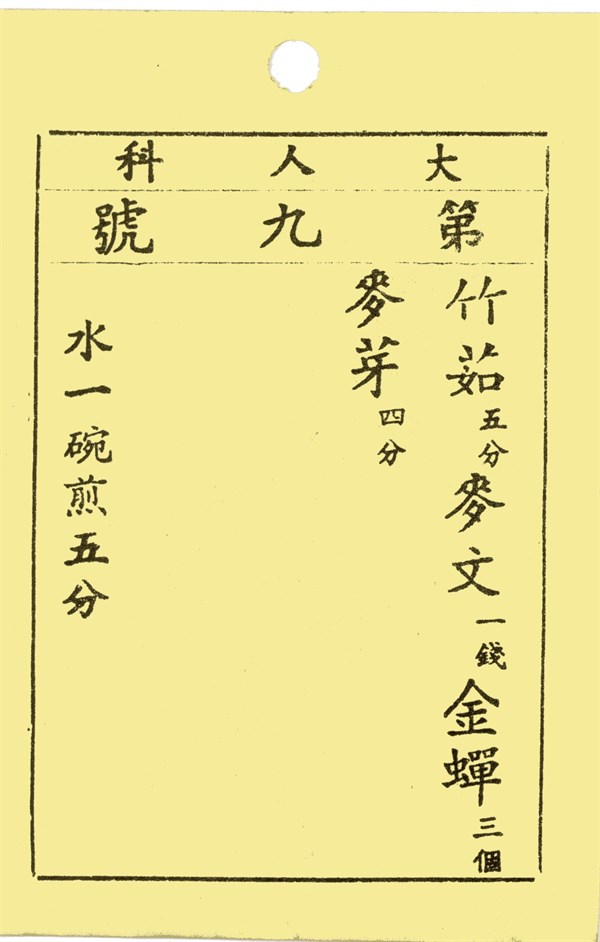 大人科
第九號
竹茹五分麥文一錢金蟬三個
麥芽四分
水一碗煎五分